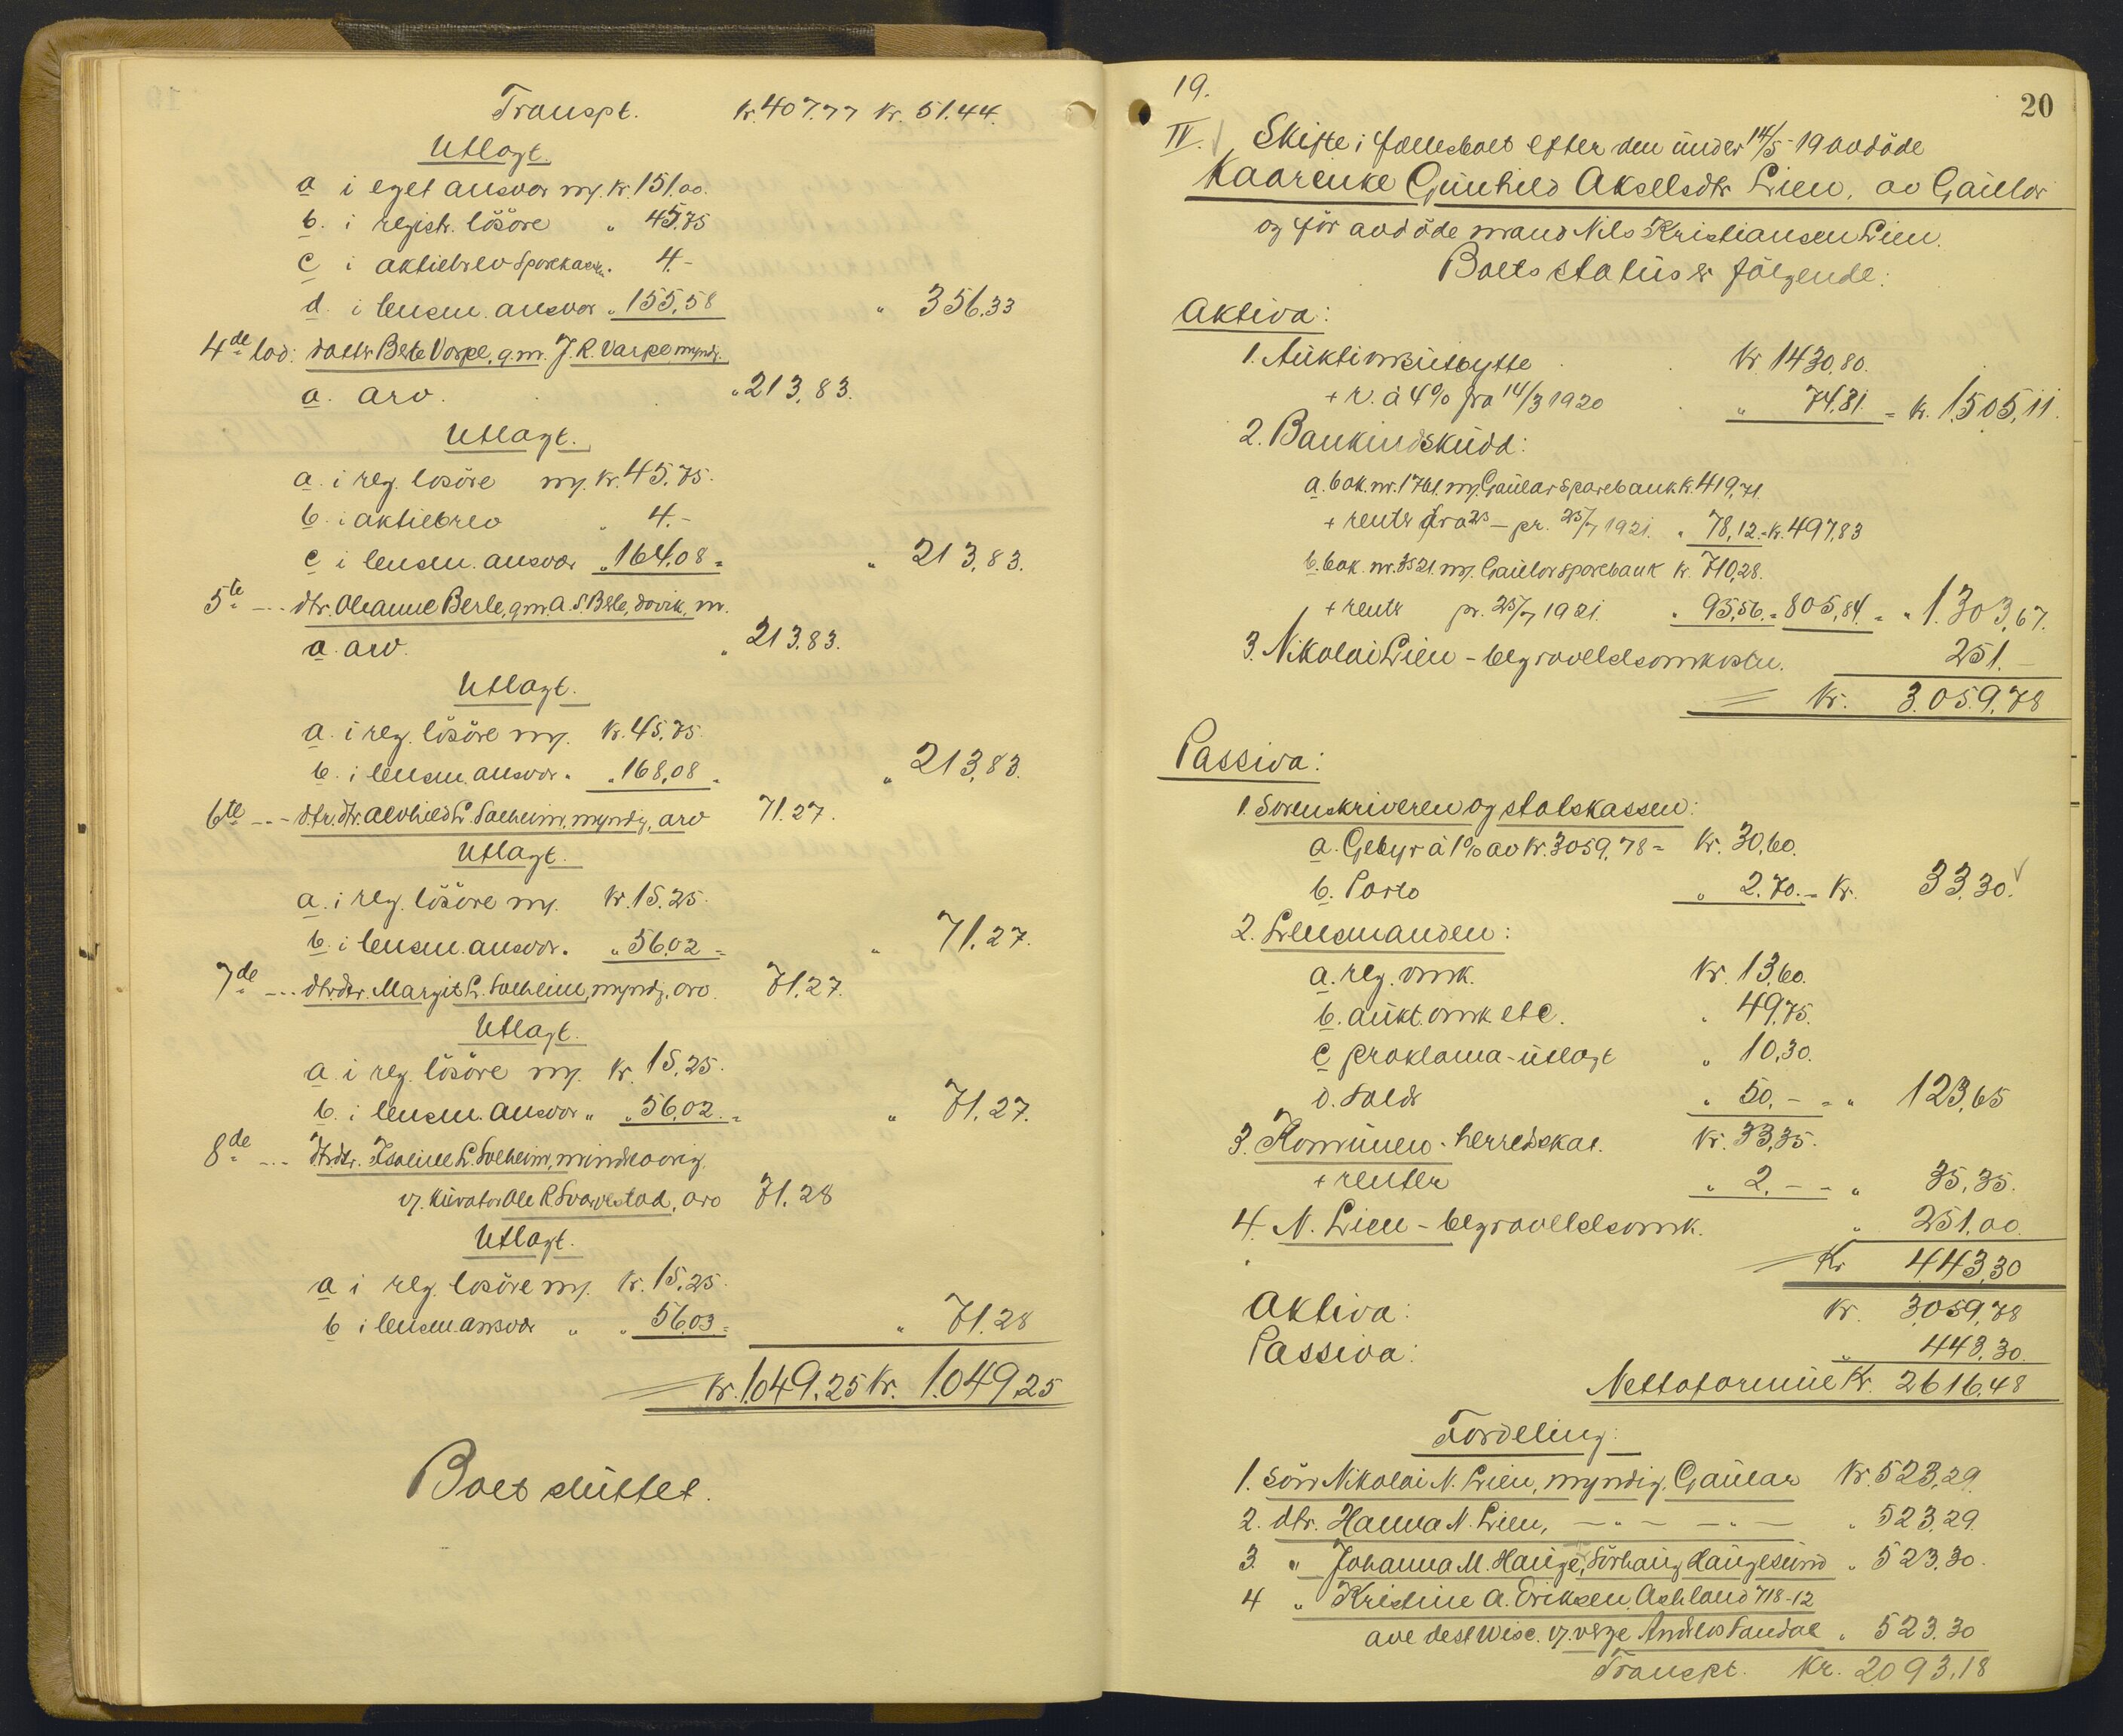 Transpt. kr. 407.77 kr. 51.44.
Utlagt.
a i eget ansvar m/. kr. 151.00.
b. i registr. lösöre " 45.75
c i aktiebrev Sparekassen. 4.-
d. i lensm. ansvar " 155.58 " 356.33
4de lod: datter Berte Varpe, g.m. J. R. Varpe, myndig.
a. arv. " 213.83.
Utlagt.
a. i reg. losöre m/. kr. 45.75.
b. i aktiebrev " 4.-
c i lensm. ansvar " 164.08 = " 213.83.
5te --- dtr. Oleanne Berle, g.m. A. S. Berle, Davik, m.
a. arv. " 213.83.
Utlagt.
a. i reg. lösöre m/. kr. 45.75.
b. i lensm. ansvar. " 168.08 = " 213.83.
6te --- dtr.dtr. Alvhild L. Solheim, myndig, arv 71.27.
Utlagt.
a. i reg. lösöre m/. kr. 15.25.
b. i lensm. ansvar. " 56.02 = " 71.27.
7de --- dtrdtr. Margit L. Solheim, myndig, arv. 71.27.
Utlagt.
a. i reg. lösöre m/. kr. 15.25.
b. i lensm. ansvar " " 56.02. = " 71.27.
8de --- dtrdtr. Isaline L. Solheim, mindreårig,
v/. kurator Ole R. Svarvestad, arv 71.28
Utlagt.
a i reg. losöre m/. kr. 15.25.
b i lensm. ansvar " " 56.03 = " 71.28
= kr. 1.049.25 kr. 1.049.25
Boet sluttet.
19.
20
IV. Skifte i fællesboet efter den under 14/5-19 avdöde
Kaarenke Gunhild Akselsdtr Lien, av Gaular
og för avdöde mand Nils Kristiansen Lien.
Boets status er fölgende:
Aktiva:
1. Auktionsutbytte kr. 1430,80.
+ r. à 4% fra 14/3 1920 " 74,31. = kr. 1.505,11.
2. Bankindskudd:
a. bok. nr. 1761. m/. Gaular Sparebank k. 419,71.
+ renter fra 23 - pr. 25/7 1921. " 78,12. = k. 497,83
b. bok. nr. 3521. m/. Gaular Sparebank kr. 710,28.
+ renter pr. 25/7 1921. " 95,56. = 805,84. = " 1.303,67.
3. Nikolai Lien - begravelsesomkostn. 251.-
= kr. 3.059,78
Passiva:
1. Sorenskriveren og statskassen:
a. Gebyr à 1% av kr. 3059,78 = kr. 30,60.
b. Porto " 2.70. = kr. 33,30.
2. Lensmanden:
a. reg. omk. kr. 13,60.
b. aukt. omk. etc. " 49,75.
c proklama-utlagt " 10,30.
d. Salær " 50,- = " 123,65
3. Kommunen - herredskat. kr. 33,35.
+ renter " 2,- - " 35,35.
4. N. Lien - begravelsesomk. " 251,00.
= Kr 443,30
Aktiva: kr. 3.059,78
Passiva: " 443,30.
Nettoformue kr. 2616,48
Fordeling:
1. sön Nikolai N. Lien, myndig, Gaular kr. 523,29.
2. dtr. Hanna N. Lien, - " - - " - " 523,29.
3. " Johanna M. Hauge, Sörhaug, Haugesund " 523,30.
4 " Kristine A. Eriksen, Ashland 718-12
ave dest Wisc. v/. verge Andreas Sandal " 523.30
Transpt. kr. 2093,18